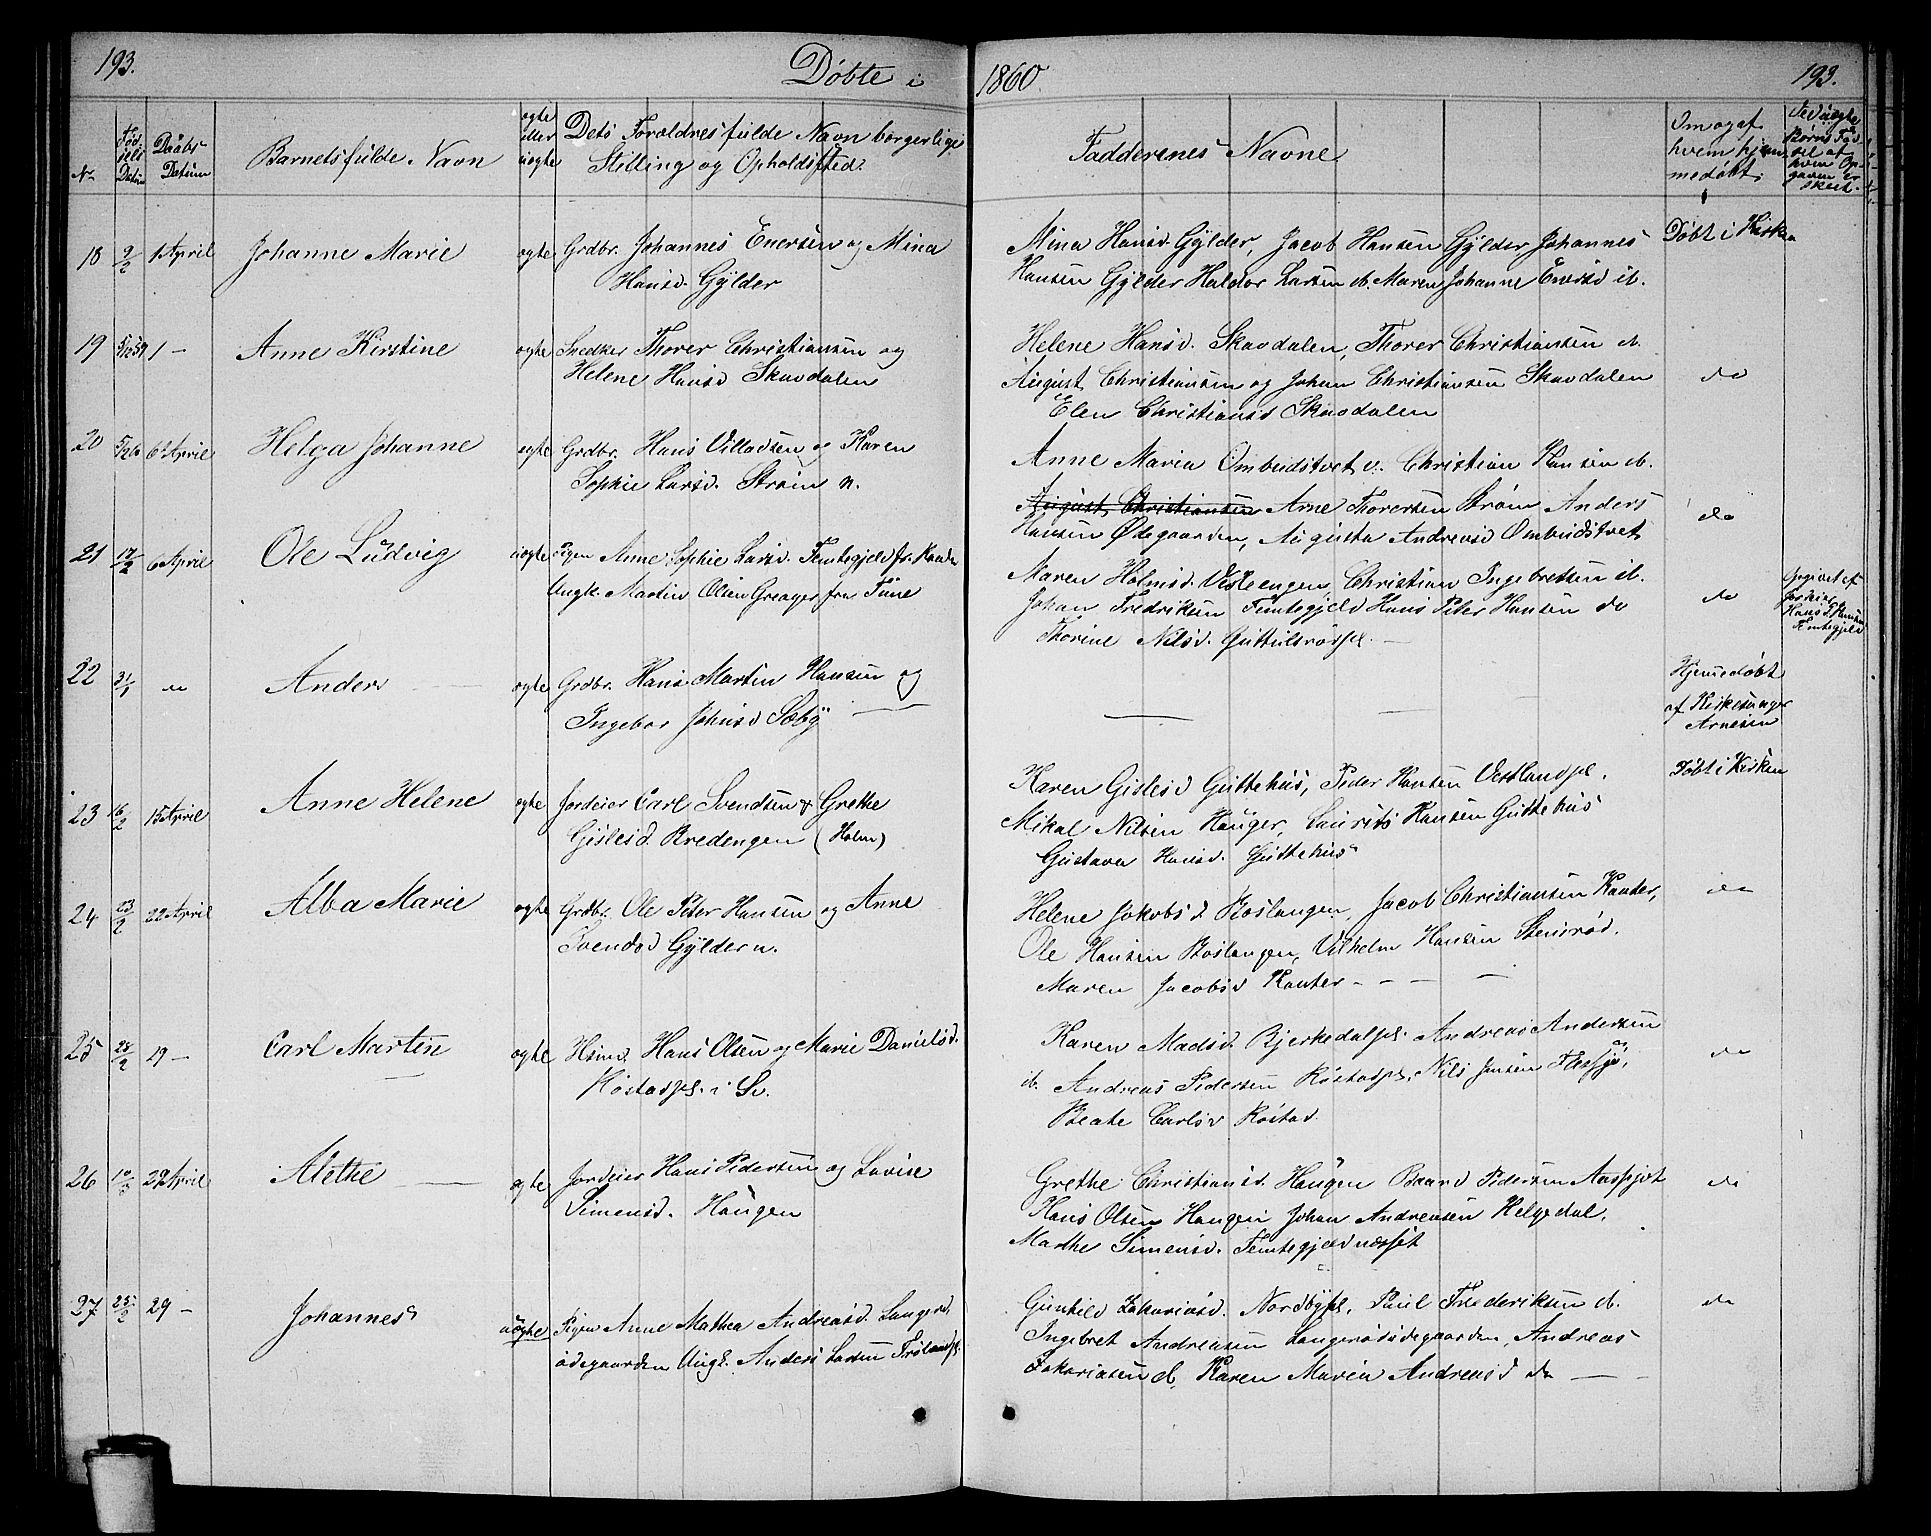 193. Døbte i 1860. 193.
No Fødsels Datum Daabs Datum Barnets fulde Navn ægte eller uægte Dets Forældres fulde Navn borgerlige Stilling og Opholdssted. Fadderenes Navne Om og af hvem hjemmedøbt.
18 9/2 1 April Johanne Marie ægte Grdbr. Johannes Enersen og Mina
Hansd. Gylder
Mina Hansd. Gylder, Jacob Hansen Gylder Johannes
Hansen Gylder Haldor Larsen ib. Maren Johanne Enersd ib.
Døbt i Kirken
19 5/12 59 1 — Anne Kirstine ægte Snedker Thorer Christiansen og
Helene Hansd Skavdalen
Helene Hansd. Skavdalen, Thorer Christiansen ib.
August Christiansen og Johan Christiansen Skavdalen
Elen Christiansd Skavdalen
do
20 6 April Helga Johanne ægte Grdbr. Hans Villadsen og Karen
Sophie Larsd. Strøm n.
Anne Maria Ombudstvet v. Christian Hansen ib.
August Christiansen Arne Thoresen Strøm Anders
Hansen Ødegaarden, Augusta Andreasd Ombudstvet
do
21 17/2 6 April Ole Ludvig uægte Pigen Anne Sophie Larsd. Femtegjeld fr.
Ungk. Martin Olsen Greager fra Tune
Maren Holmsd. Vestengen Christian Ingebretsen ib.
Johan Fredriksen Femtegjeld Hans Peter Hansen do
Thorine Nilsd.
do
Opgivet af
Jordeier
Hans P. Hansen
Femtegjeld
22 31/1 do Anders — ægte Grdbr. Hans Martin Hansen og
Ingebor Johnsd Sæby —
Hjemmedøbt
af Kirkesanger
Arnesen
23 16/2 15 April Anne Helene ægte Jordeier Carl Svendsen & Grethe
Gislesd. Bredengen (Holm)
Karen Gislesd Guttehus, Peder Hansen Vestlandpl.
Mikal Nilsen Hauger, Laurits Hansen Guttehus
Gustava Hansd. Guttehus
Døbt i Kirken
24 23/2 22 April Alba Marie ægte Grdbr. Ole Peter Hansen og Anne
Svendsd Gylder n.
Helene Jakobsd Boslangen, Jacob Christiansen Kanter,
Ole Hansen Boslangen, Vilhelm Hansen Stensrød.
Maren Jacobsd Kanter - - - -
do
25 28/2 29 — Carl Martin ægte Hans Olsen og Marie Danielsd.
Røstadpl. i Sv.
Karen Madsd. Bjerkedalspl. Andreas Andersen
ib. Andreas Pedersen Røstadpl. Nils Jensen
Beate Carlsd Røstad.
do
26 10/3 29 April Alethe — ægte Jordeier Hans Pedersen og Lovise
Simensd. Haugen
Grethe Christiansd. Haugen Baard Pedersen
Hans Olsen Haugen Johan Andreasen Helgedal.
Marthe Simensd. Femtegjeldnæsset
do
27 25/2 29 — Johannes uægte Pigen Anne Mathea Andreasd. Langerød
ødegaarden Ungk. Anders Larsen
Gunhild Zakariasd. Nordbypl, Paul Frederiksen ib.
Ingebret Andreasen Langerødødegaarden, Andreas
Zakariasen ib, Karen Maria Andreasd do —
do